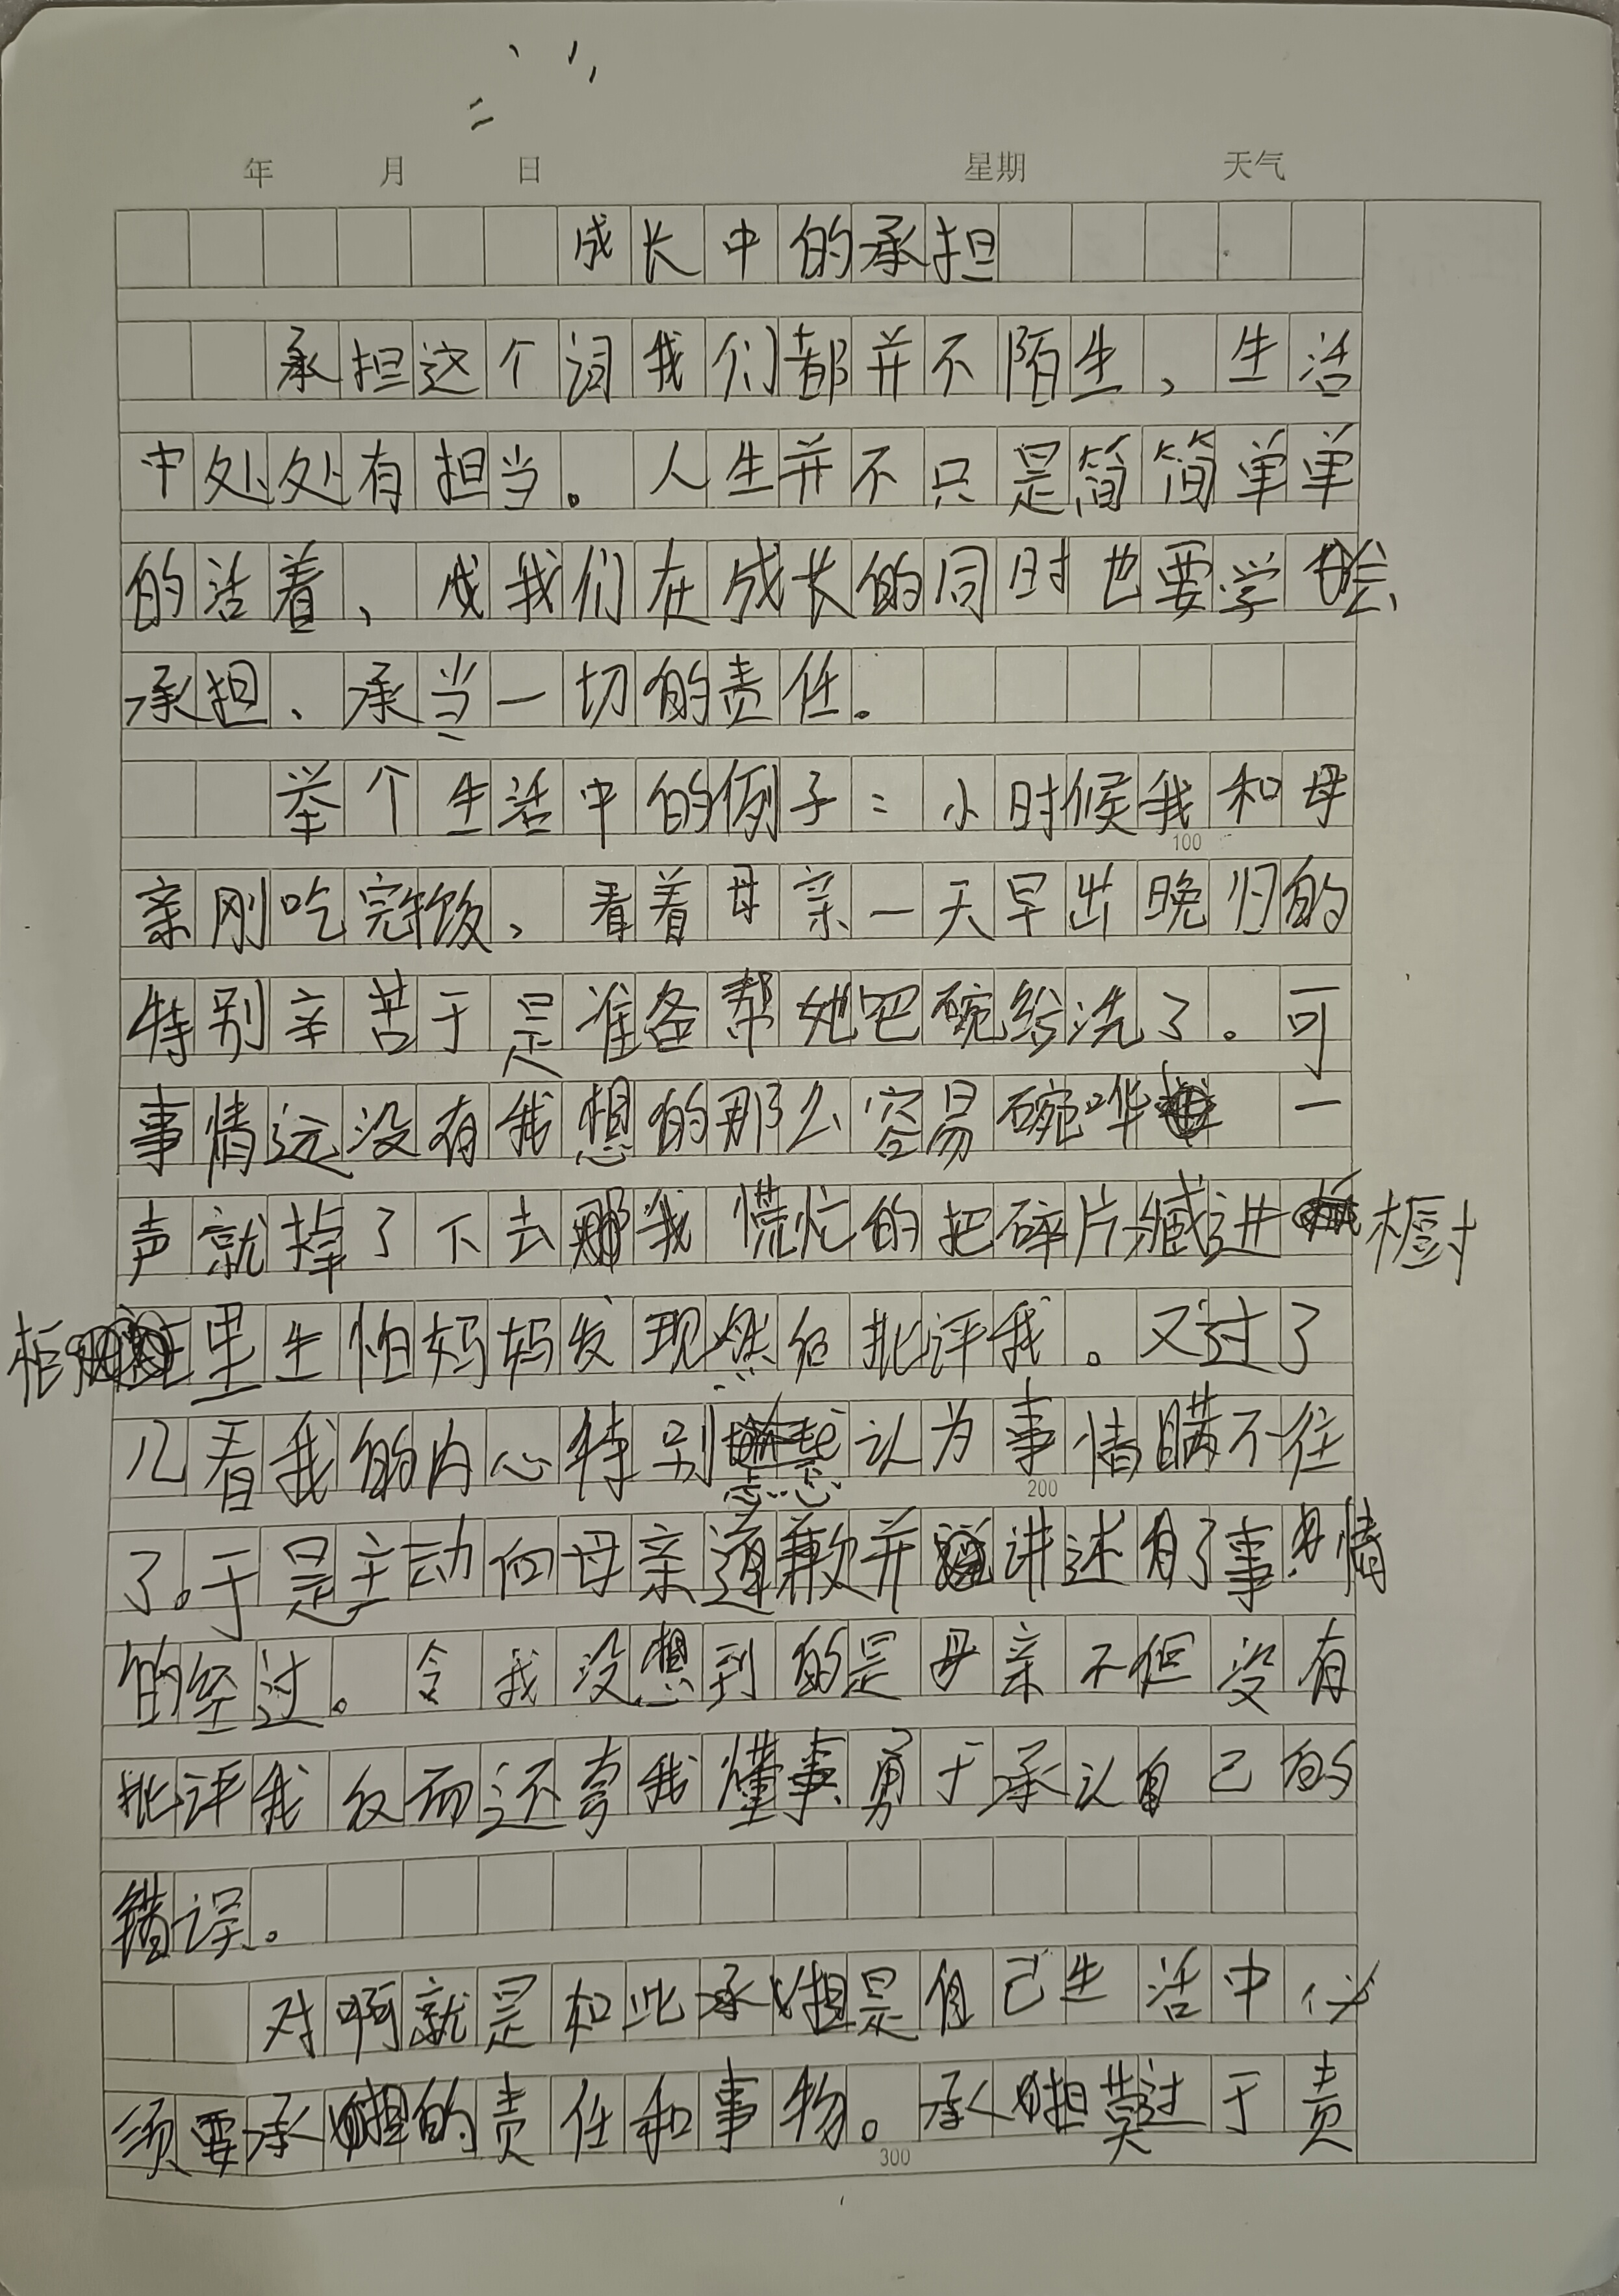 年 月 日 星期 天气
成长中的承担
承担这个词我们都并不陌生,生活
中处处有担当。人生并不只是简简单单
的活着,我们在成长的同时也要学会
承担、承当一切的责任。
举个生活中的例子:小时候我和母
100
亲刚吃完饭,看着母亲一天早出晚归的
特别辛苦于是准备帮她吧碗给洗了。可
事情远没有我想的那么容易碗哗一
声就掉了下去我慌忙的把碎片藏进橱
柜里生怕妈妈发现然后批评我。又过了
儿看我的内心特别忐忑认为事情瞒不住
200
了。于是主动向母亲道歉并讲述了事情
的经过。令我没想到的是母亲不但没有
批评我反而还夸我懂事勇于承认自己的
错误。
对啊就是如此承担是自己生活中必
须要承担的责任和事物。承担莫过于责
300